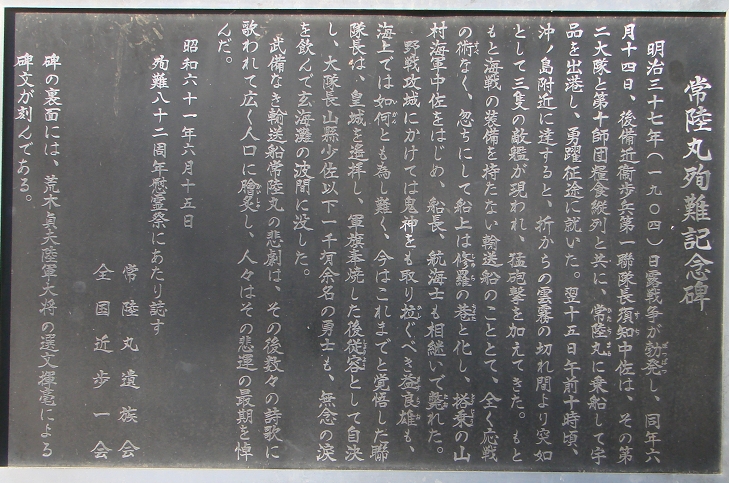 常陸丸殉難記念碑
明治三十七年(一九〇四)日露戦争が勃発し、同年六
月十四日、後備近衛歩兵第一聯隊長須知中佐は、その第
二大隊と第十師団糧食縦列と共に、常陸丸に乗船して宇
品を出港し、勇躍征途に就いた。翌十五日午前十時頃、
沖ノ島附近に達すると、折からの雲霧の切れ間より突如
として三隻の敵艦が現われ、猛砲撃を加えてきた。もと
もと海戦の装備を持たない輸送船のこととて、全く応戦
の術なく、忽ちにして船上は修羅の巷と化し、搭乗の山
村海軍中佐をはじめ、船長、航海士も相継いで斃れた。
野戦攻城にかけては鬼神をも取り拉ぐべき益良雄も、
海上では如何とも為し難く、今はこれまでと覚悟した聯
隊長は、皇城を遙拝し、軍旗奉焼した後従容として自決
し、大隊長山縣少佐以下一千有余名の勇士も、無念の涙
を飲んで玄海灘の波間に没した。
武備なき輸送船常陸丸の悲劇は、その後数々の詩歌に
歌われて広く人口に膾炙し、人々はその悲運の最期を悼
んだ。
昭和六十一年六月十五日
殉難八十二周年慰霊祭にあたり誌す
常陸丸遺族会
全国近歩一会
碑の裏面には、荒木貞夫陸軍大将の選文揮毫による
碑文が刻んである。